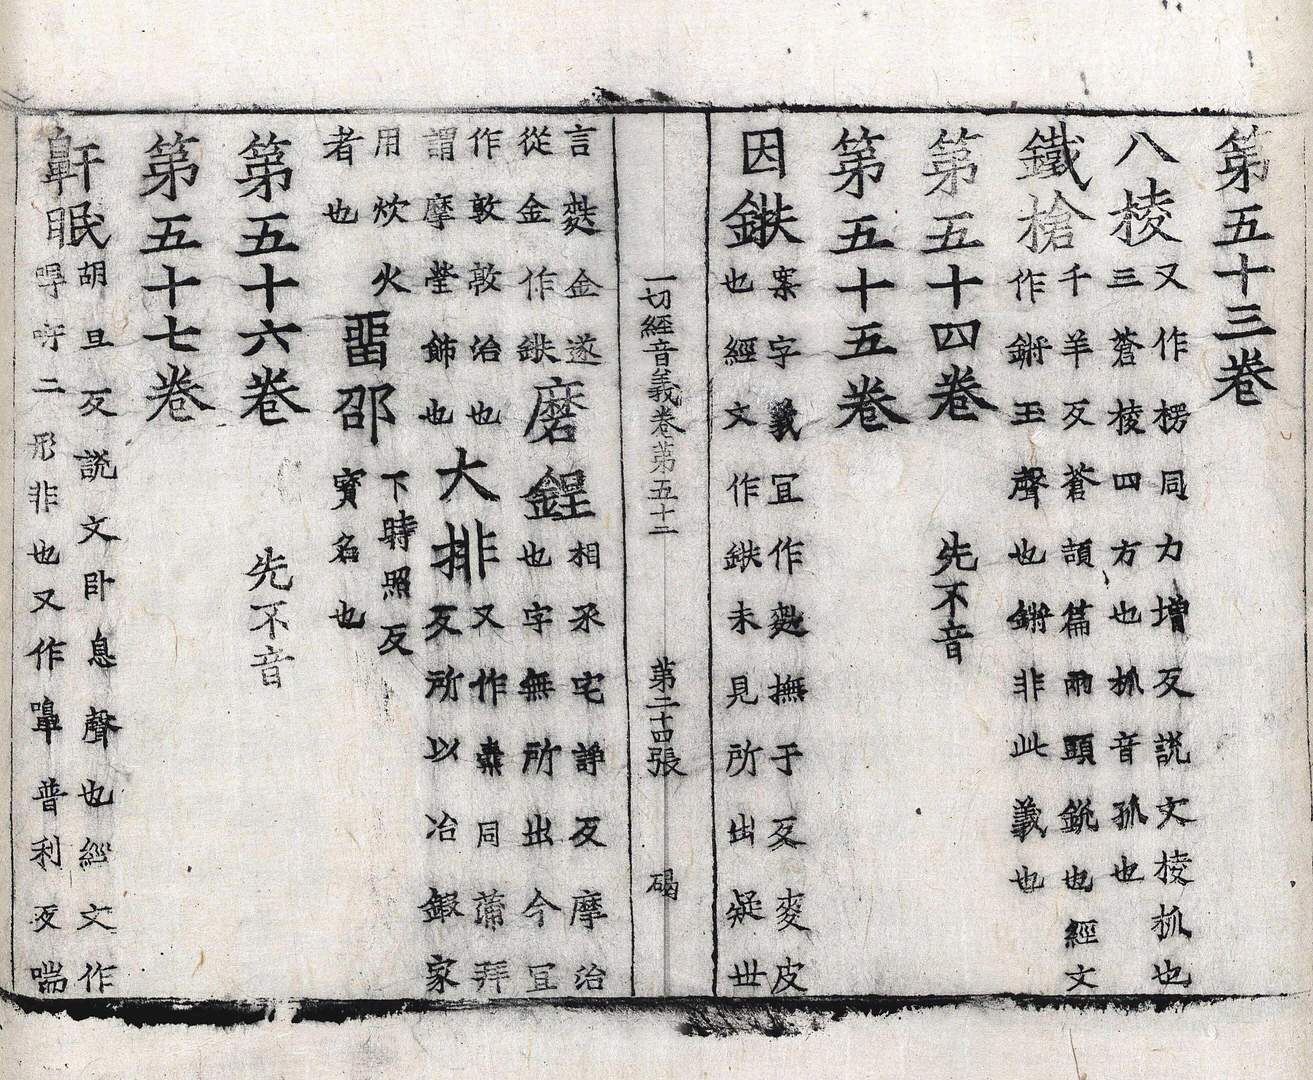 第五十三卷
八棱又作楞同力增反說文棱柧也
三蒼棱四方也柧音孤也
鐵槍千羊反蒼頡篇兩頭銳也經文
作鏘玉聲也鏘非此義也
第五十四卷 先不音
第五十五卷
因鉄案字義宜作麩撫于反麥皮
也經文作鉄未見所出疑世
一切經音義卷第五十二 第二十四張 碣
言麩金遂
從金作鉄磨鋥相承宅諍反摩治
也字無所出今宜
作敦敦治也
謂摩瑩飾也大排又作橐同蒲拜
反所以冶鍛家
用炊火
者也㽞邵下時照反
寶名也
第五十六卷 先不音
第五十七卷
鼾眠胡旦反說文臥息聲也經文作
㖒吁二形非也又作嚊普利反喘